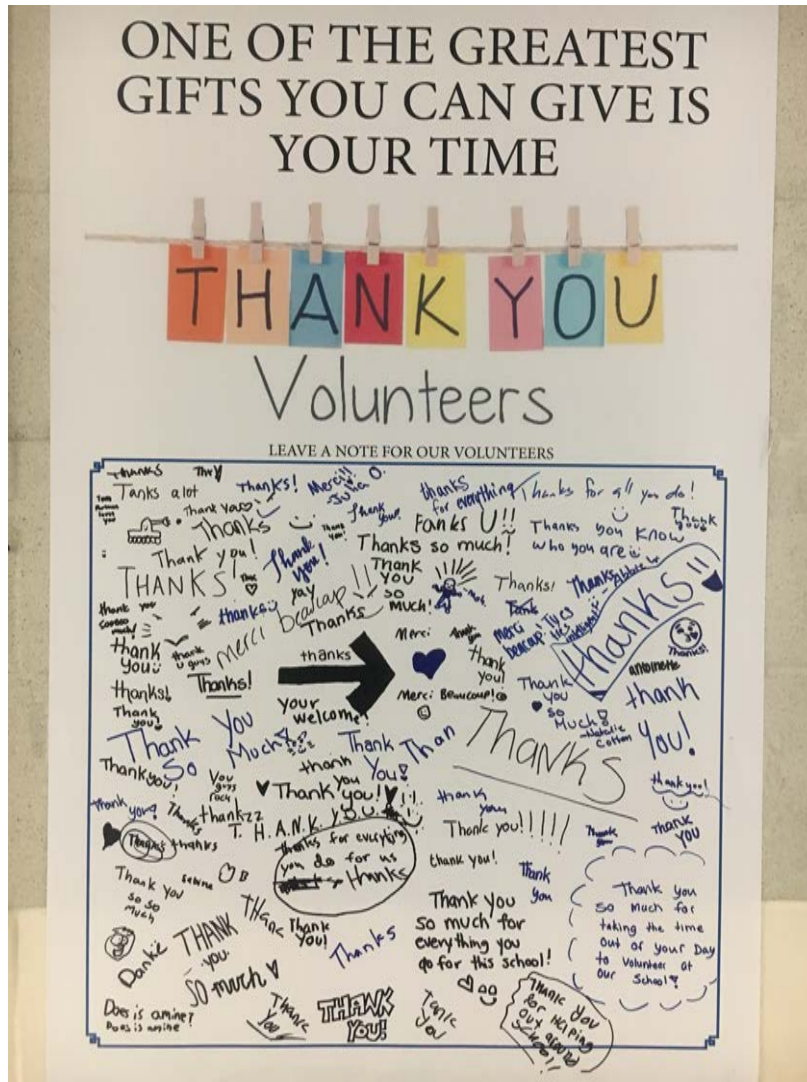 ONE OF THE GREATEST
GIFTS YOU CAN GIVE IS
YOUR TIME
THANK YOU
Volunteers
LEAVE A NOTE FOR OUR VOLUNTEERS
thanks
Tanks a lot
Thanks!
Merci!!
-Julia O.
thanks
for everything
Thanks for all you do!
Thank you
Thanks
Thank you!
Fanks U!!
Thanks you know
who you are
Thank
you!
Thank you!
Thank
you!
Thanks so much!
THANKS!
yay
Thank
you
so
much!
Thanks!
Thanks
thanks!!
thank you
thanks
merci beaucoup!!
Thanks
Merci
merci
beaucoup!
Thanks!
thank
you
thank
u guys
thanks
thank
you!
antoinette
thanks!
Thanks!
Merci Beaucoup!
Thank
you
so
Much!
-Natalie
thank
you!
Thank
you
your
welcome!
Thank
You
So
Much!
Thank
You!
Than
Thanks
Thankyou!
You
guys
rock
thank
you
Thank you!
thank you!
Thank you!
Thanks
thankzz
T.H.A.N.K. Y.O.U.
thank
you
Thank you!!!!!
Thank
THANK
YOU
thanks
thanks for everything
you do for us
thanks
thank you!
Thank
you
Thank you
so so
much
Sabine
Thank you
so much for
everything you
do for this school!
Thank you
so much for
taking the time
out of your Day
to Volunteer at
our School!
Danke
THANK
you
so much
Thank
You!
Thanks
Does is amine?
Does is amine
Thank
you
THANK
YOU!
Tank
You
Thank you
for helping
out around
school!!